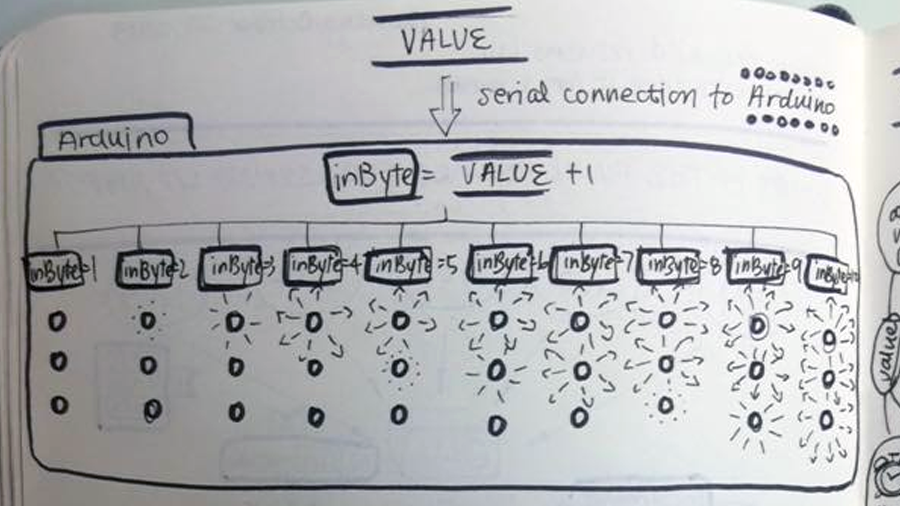 VALUE
serial connection to Arduino
Arduino
inByte = VALUE +1
inByte=1 inByte=2 inByte=3 inByte=4 inByte=5 inByte=6 inByte=7 inByte=8 inByte=9 inByte=10
value